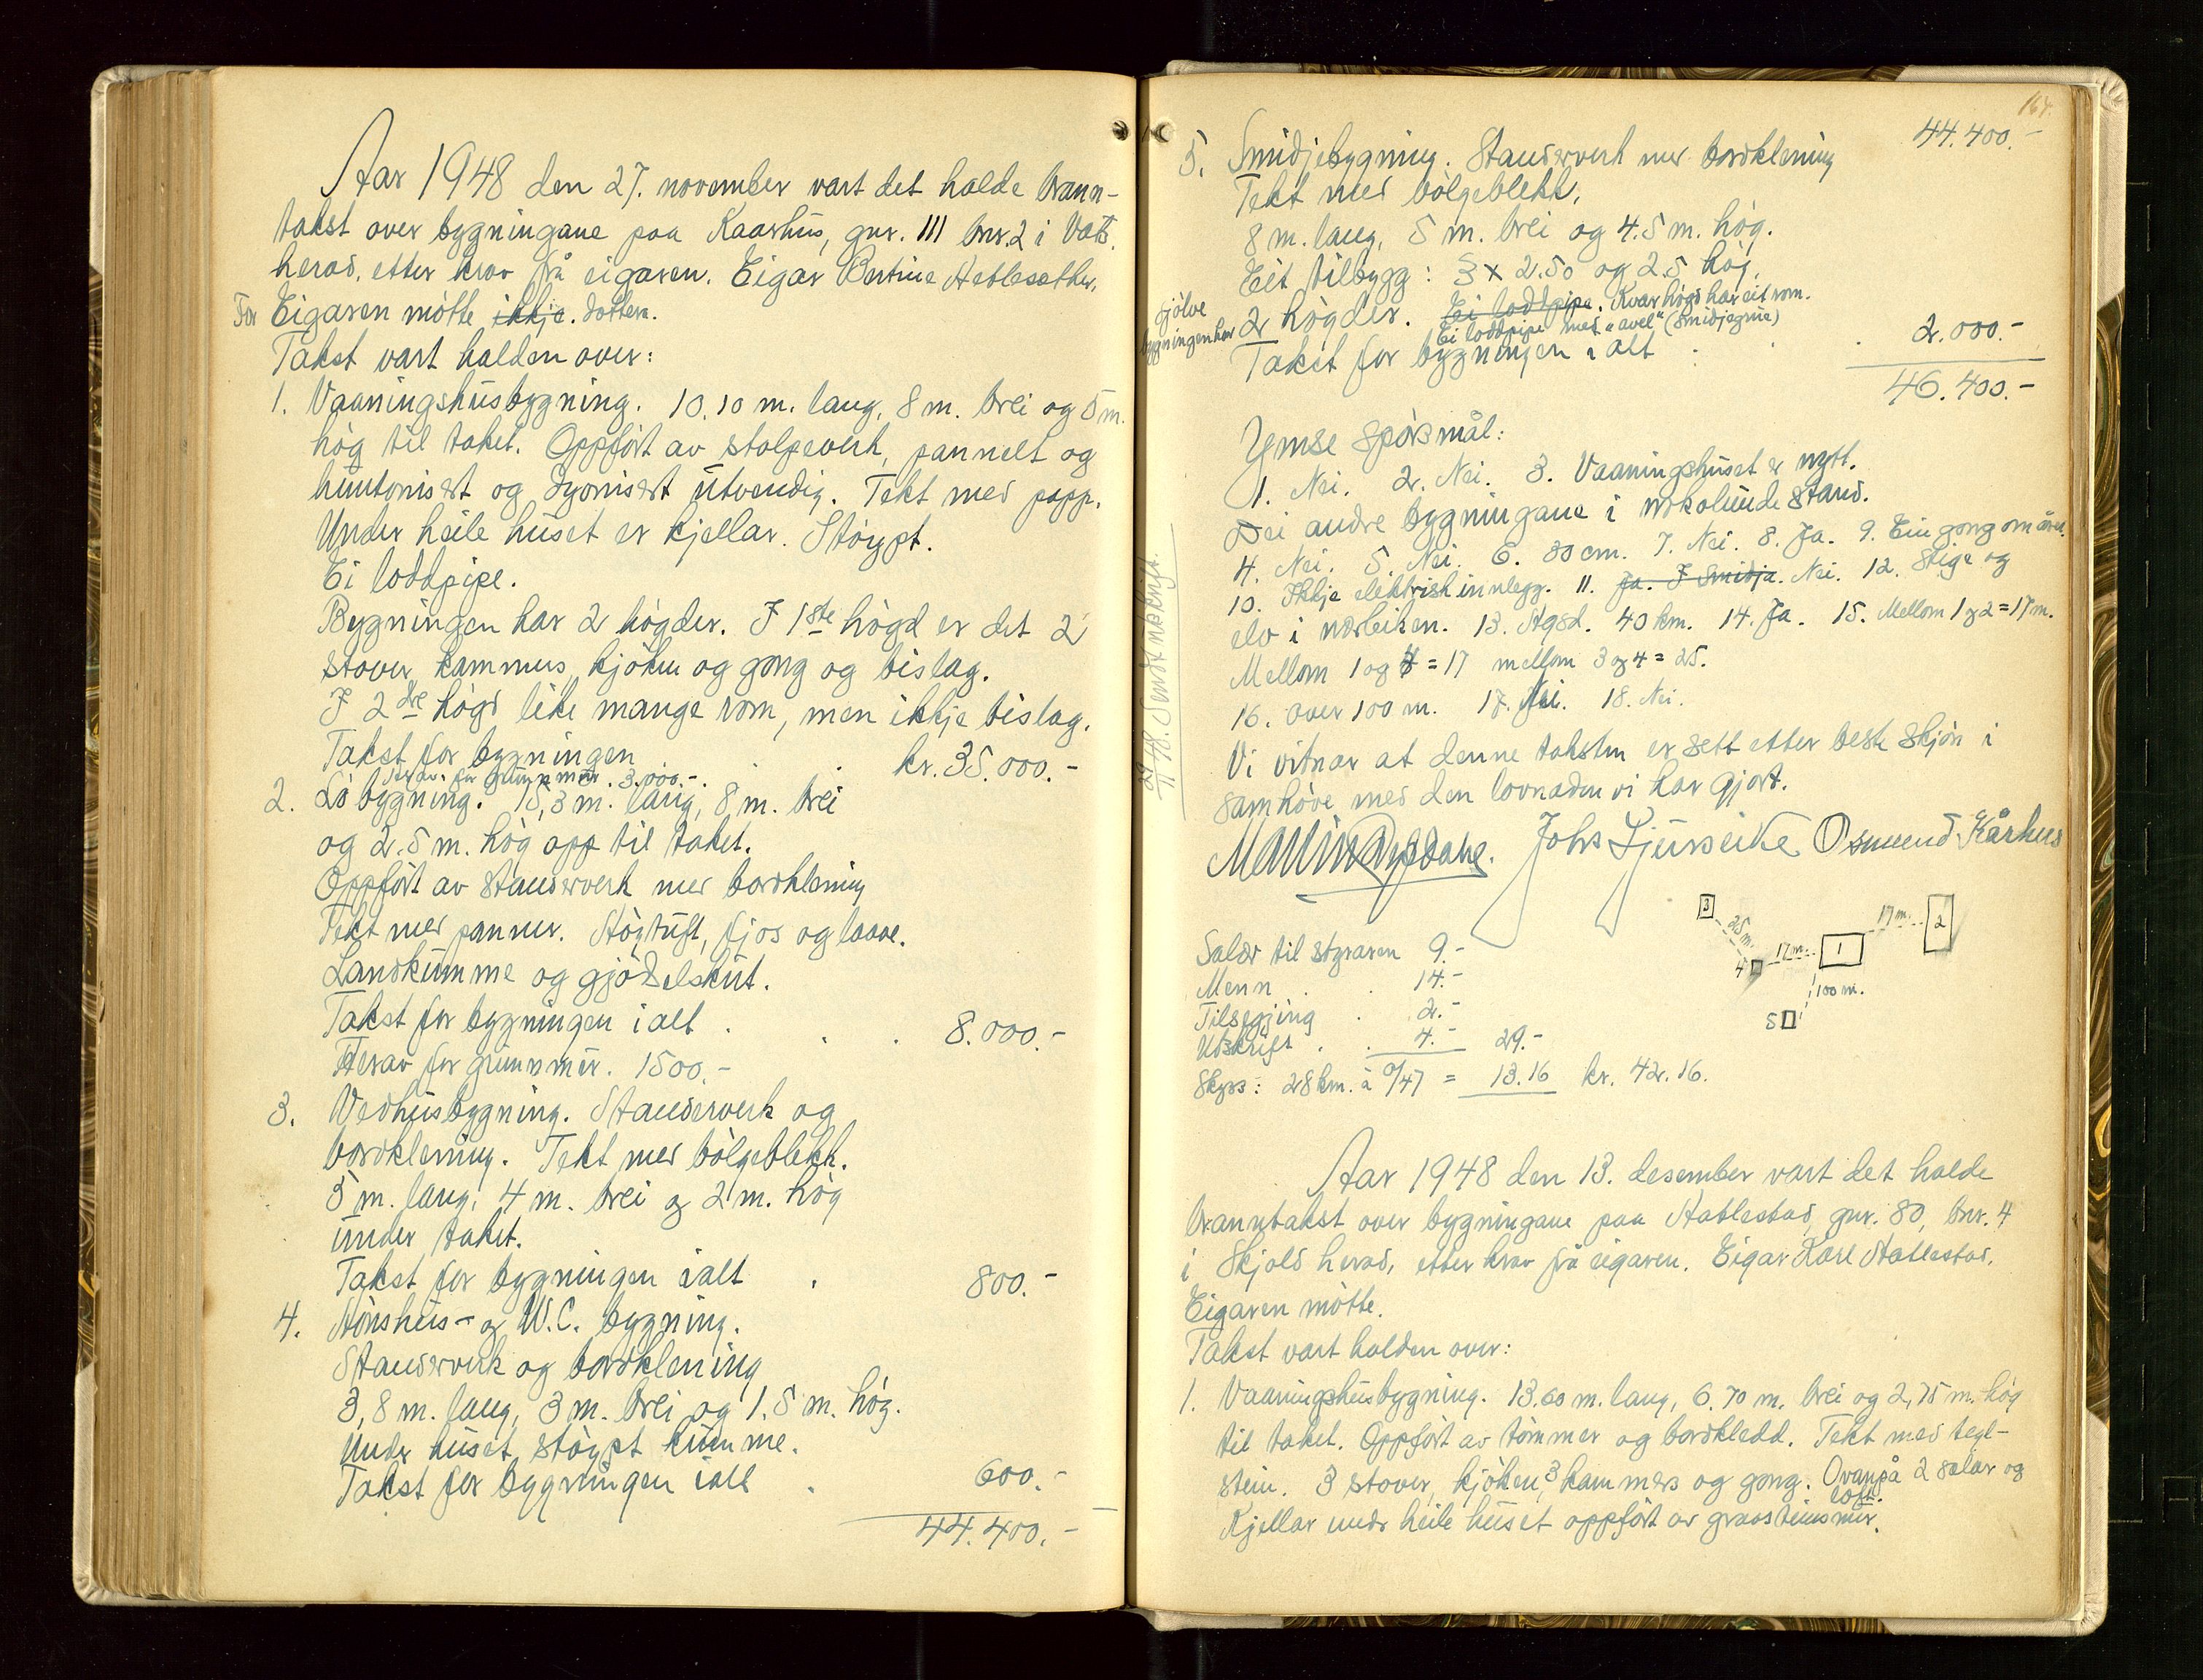 Aar 1948 den 27. november vart det halde brann-
takst over bygningane paa Kaarhus, gnr. 111 bnr. 2 i Vats
herad, etter krav frå eigaren. Eigar Bertine Hetlesæther.
For Eigaren møtte ikkje. dottera.
Takst vart halden over:
1. Vaaningshusbygning. 10.10 m. lang, 8 m. brei og 5 m.
høg til taket. Oppført av stolpeverk, pannelt og
huntonisert og dyonisert utvendig. Tekt med papp.
Under heile huset er kjellar. Støypt.
Ei loddpipe.
Bygningen har 2 høgder. I 1ste høgd er det 2
stover, kammus, kjøken og gong og bislag.
I 2dre høgd like mange rom, men ikkje bislag.
Takst for bygningen . . kr. 35.000.-
Herav for grunnmur . 3.000.-
2. Løbygning. 15,3 m. lang, 8 m. brei
og 2.5 m. høg opp til taket.
Oppført av stauserverk med bordklening
Tekt med panner. Høgtuft, fjos og laave.
Landkumme og gjødselskut.
Takst for bygningen ialt . . . 8.000.-
Herav for grunnmur. 1500.-
3. Vedhusbygning. Stauserverk og
bordklening. Tekt med bølgeblekk.
5 m. lang, 4 m. brei og 2 m. høg
under taket.
Takst for bygningen ialt . 800.-
4. Hønshus- og W.C. bygning.
Stauserverk og bordklening
3,8 m. lang, 3 m. brei og 1.5 m. høg.
Under huset, støypt kumme.
Takst for bygningen ialt . 600.-
44.400.-
164.
44.400.-
5. Smidjebygning. Stauserverk med bordklening
Tekt med bølgeblekk.
8 m. lang, 5 m. brei og 4.5 m. høg.
Eit tilbygg: 3 x 2.50 og 2.5 høg.
sjølve
bygningen har 2 høgder. Ei loddpipe. Kvar høgd har eit rom.
Ei loddpipe med "avel" (Smidjegrue)
Takst for bygningen ialt . . . 2.000.-
46.400.-
Ymse spørsmål:
1. Nei. 2. Nei. 3. Vaaningshuset er nytt.
Dei andre bygningane i nokolunde stand.
4. Nei. 5. Nei. 6. 80 cm. 7. Nei. 8. Ja. 9. Ein gong om året.
10. Ikkje elektrisk innlegg. 11. Ja. I Smidja. Nei. 12. Stige og
elv i nærleiken. 13. Hgsd. 40 km. 14. Ja. 15. Mellom 1 og 2 = 17 m.
Mellom 1 og 4 = 17 mellom 3 og 4 = 25.
16. over 100 m. 17. Nei. 18. Nei.
Vi vitnar at denne taksten er sett etter beste skjøn i
samhøve med den lovnaden vi har gjort.
29/11 48. Sendt utskrift.
Johs Ljunseike Osmund Kårhus
3 25 m. 4 17 m. 1 17 m. 2
100 m.
5
Salær til styraren 9.-
Menn . . 14.-
Tilseging . 2.-
Utskrift . . 4.- 29.-
Skyss: 28 km. à 0/47 = 13.16 kr. 42.16.
Aar 1948 den 13. desember vart det halde
branntakst over bygningane paa Hatlestad, gnr. 80, bnr. 4
i Skjold herad, etter krav frå eigaren. Eigar Karl Hatlestad.
Eigaren møtte.
Takst vart halden over:
1. Vaaningshusbygning. 13.60 m. lang, 6.70 m. brei og 2,75 m. høg
til taket. Oppført av tømmer og bordkledd. Tekt med tegl-
stein. 3 stover, kjøken, 3 kammers og gong. Ovanpå 2 salar og
loft.
Kjellar under heile huset oppført av graasteinsmur.